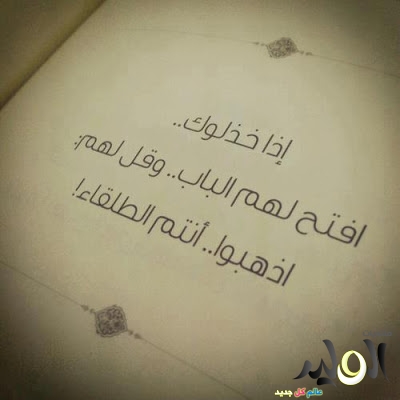 إذا خذلوك..
افتح لهم الباب.. وقل لهم:
اذهبوا.. أنتم الطلقاء!
عالم كل جديد